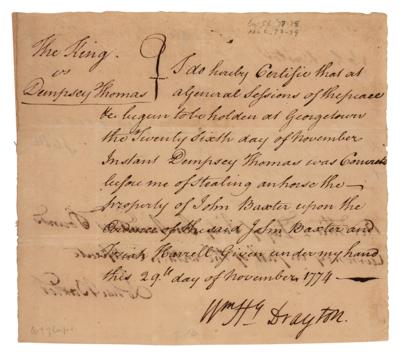 The King
vs
Dempsey Thomas
I do hereby Certifie that at
a General Sessions of the peace
be begun to be holden at Georgetown
the Twenty Sixth day of November
Instant Dempsey Thomas was Convict
before me of Stealing an horse the
property of John Baxter upon the
Evidence of the said John Baxter and
Harrell Given under my hand
this 29th day of November 1774
Wm Hy Drayton.